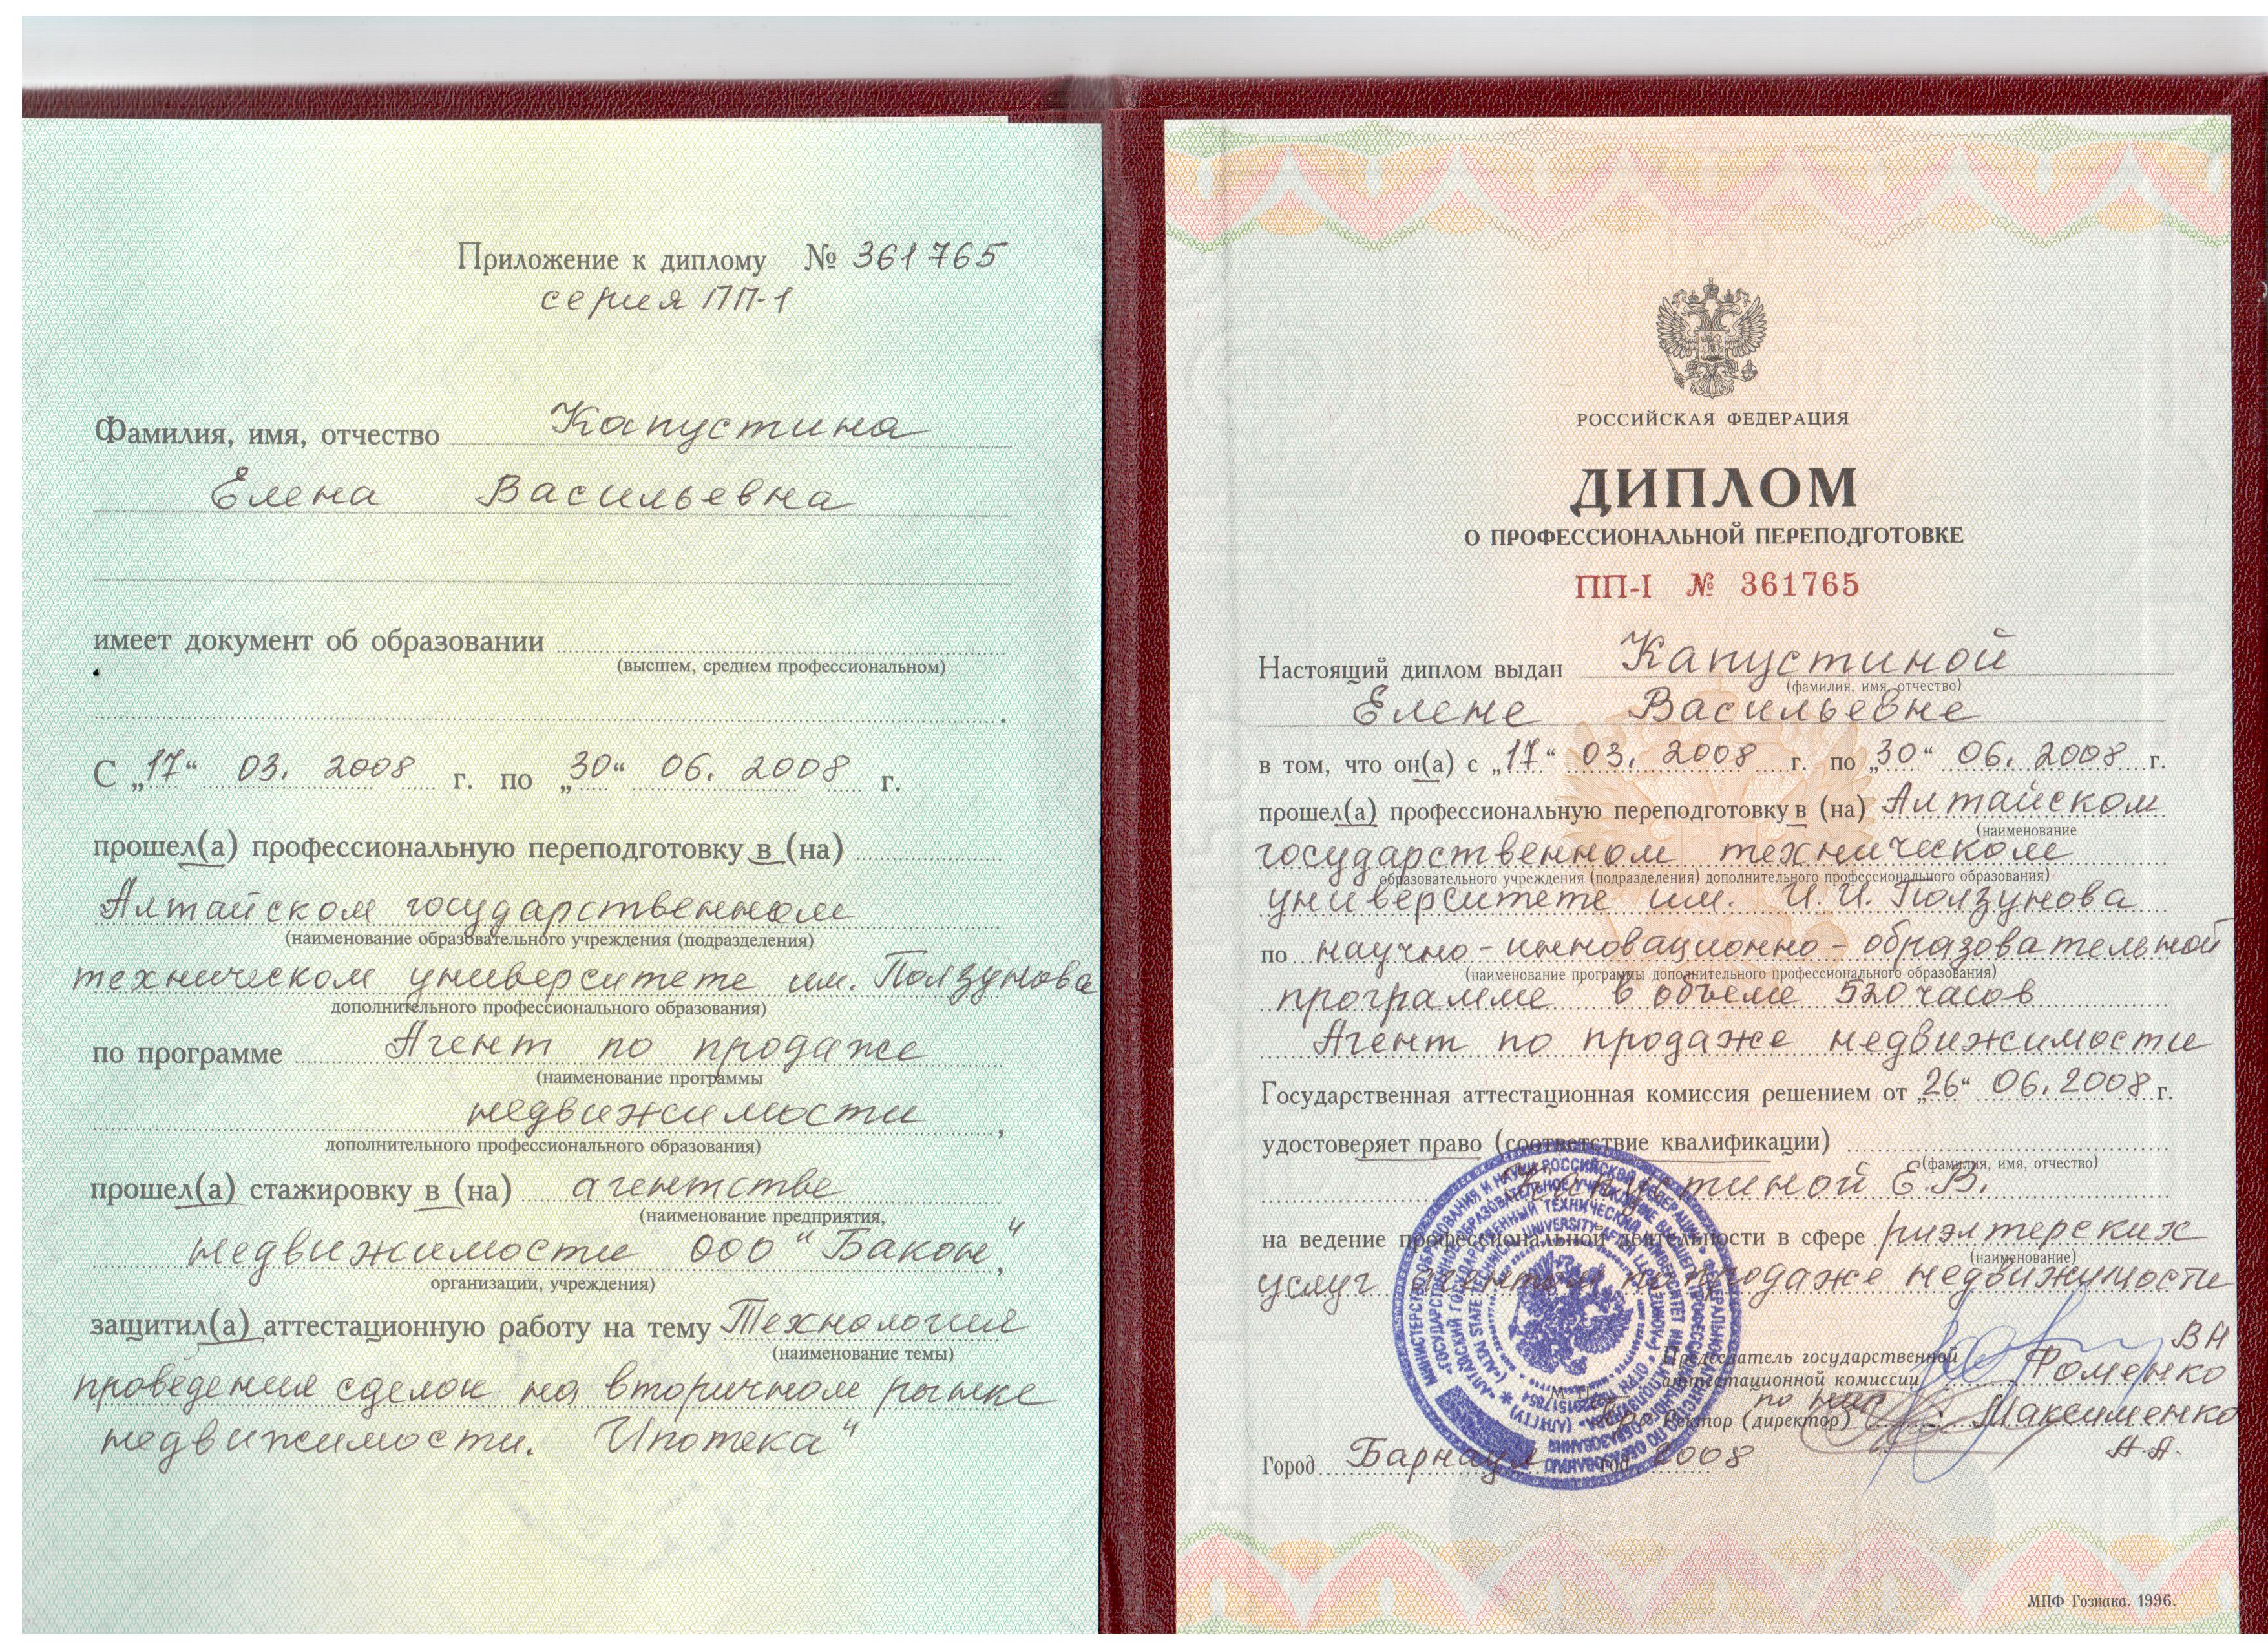 Приложение к диплому № 361765
серия ПП-1
Фамилия, имя, отчество Капустина
Елена Васильевна
имеет документ об образовании
(высшем, среднем профессиональном)
С „17“ 03. 2008 г. по „30“ 06. 2008 г.
прошел(а) профессиональную переподготовку в (на)
Алтайском государственном
(наименование образовательного учреждения (подразделения)
техническом университете им. Ползунова
дополнительного профессионального образования)
по программе Агент по продаже
(наименование программы
недвижимости,
дополнительного профессионального образования)
прошел(а) стажировку в (на) агентстве
(наименование предприятия,
недвижимости ООО "Бакон",
организации, учреждения)
защитил(а) аттестационную работу на тему Технология
(наименование темы)
проведения сделок на вторичном рынке
недвижимости. Ипотека"
РОССИЙСКАЯ ФЕДЕРАЦИЯ
ДИПЛОМ
О ПРОФЕССИОНАЛЬНОЙ ПЕРЕПОДГОТОВКЕ
ПП-I № 361765
Настоящий диплом выдан Капустиной
(фамилия, имя, отчество)
Елене Васильевне
в том, что он(а) с „17“ 03. 2008 г. по „30“ 06. 2008 г.
прошел(а) профессиональную переподготовку в (на) Алтайском
(наименование
государственном техническом
образовательного учреждения (подразделения) дополнительного профессионального образования)
университете им. И.И. Ползунова
по научно-инновационно-образовательной
(наименование программы дополнительного профессионального образования)
программе в объеме 520 часов
Агент по продаже недвижимости
Государственная аттестационная комиссия решением от „26“ 06. 2008 г.
удостоверяет право (соответствие квалификации)
(фамилия, имя, отчество)
Капустиной Е.В.
на ведение профессиональной деятельности в сфере риэлтерских
(наименование)
услуг агентом по продаже недвижимости
Председатель государственной
аттестационной комиссии
В Н
Фоменко
Ректор (директор) Максименко
А.А.
Город Барнаул год 2008
МПФ Гознака. 1996.